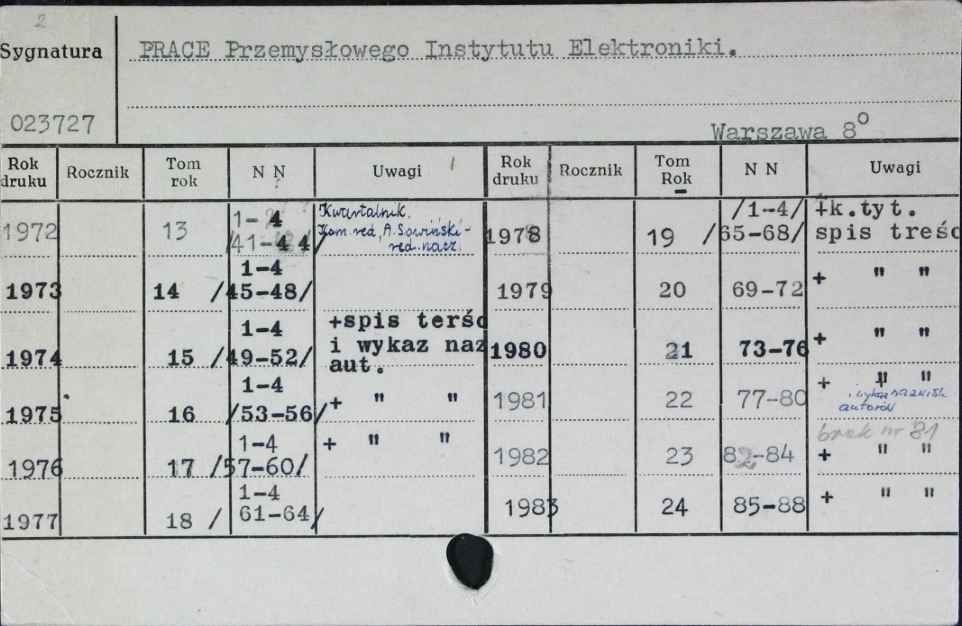 2
Sygnatura
PRACE Przemysłowego Instytutu Elektroniki.
023727
Warszawa 8°
Rok druku Rocznik Tom rok N N Uwagi Rok druku Rocznik Tom Rok N N Uwagi
1972 13 1-4 /41-44/ Kwartalnik. Kom. red. A. Sowiński - red. nacz.
1973 14 1-4 /45-48/
1974 15 1-4 /49-52/ +spis terśc i wykaz naz aut.
1975 16 1-4 /53-56/ + " "
1976 17 1-4 /57-60/ + " "
1977 18 1-4 / 61-64/
1978 19 /1-4/ /65-68/ +k.tyt. spis treśc
1979 20 69-72 + " "
1980 21 73-76 + " "
1981 22 77-80 + " " i wykaz nazwisk autorów
1982 23 82-84 brak nr 81 + " "
1983 24 85-88 + " "